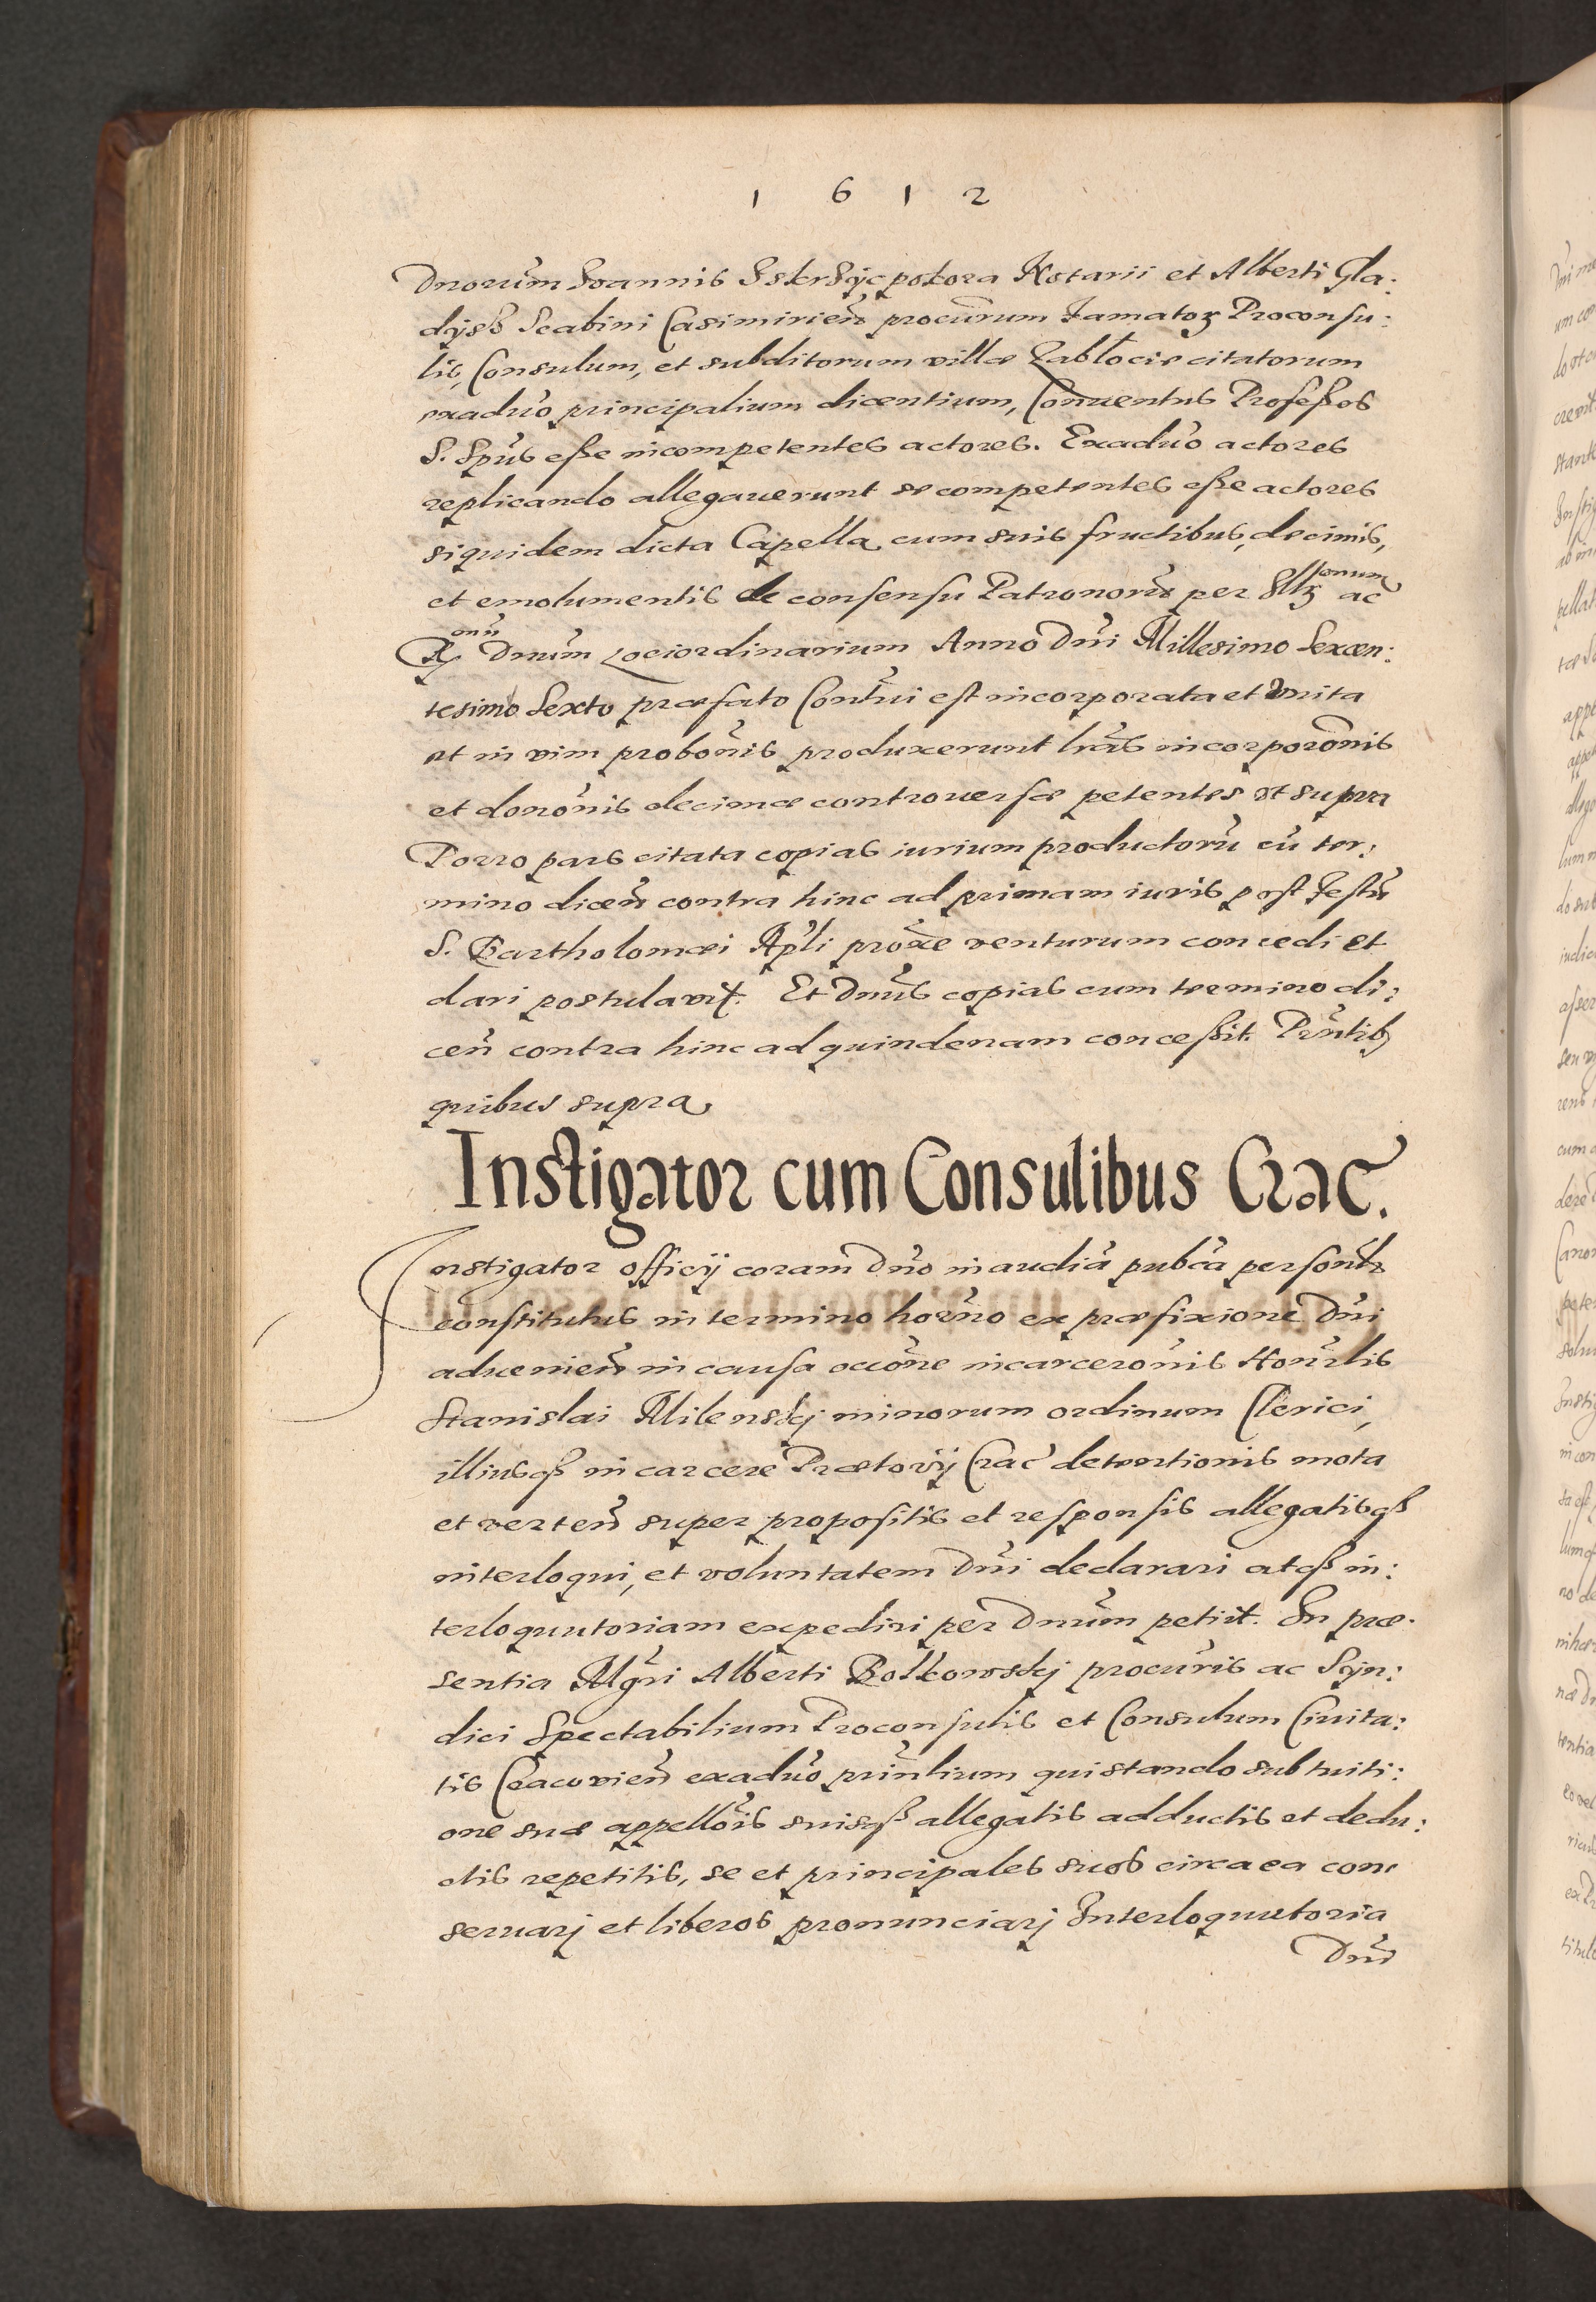 1 6 1 2
Dnorum Joannis Iskrzycpolora Notarii et Alberti Gla:
dysz Scabini Casimirien̄ procurum Famatoꝝ Proconsu:
lis, Consulum, et subditorum villæ Zablocie citatorum
exaduo principalium dicentium, Conuentus Professos
S. Spūs esse incompetentes actores. Exaduo actores
replicando allegauerunt se competentes esse actores
siquidem dicta Capella cum suis fructibus, decimis,
et emolumentis de consensu Patronorū per Illꝫ ac
R Dnum Lociordinarium Anno Dni Millesimo Sexcen:
tesimo Sexto præfato Contui est incorporata et vnita
et in vim probonis produxerunt lras incorporonis
et dononis decimæ controuersæ petentes vt supra
Porro pars citata copias iurium productorū cū ter:
mino dicen̄ contra hinc ad primam iuris post festū
S. Bartholomæi Apli proxe venturum concedi et
dari postulavit. Et Dnus copias cum termino di:
cen̄ contra hinc ad quindenam concessit. Pntibꝫ
quibus supra
Instigator cum Consulibus Crac.
Instigator officij coram Dno in audia pubca personlr
constitutus in termino horno ex præfixione Dni
aduenien̄ in causa occone incarceronis Honrlis
Stanislai Milenskj minorum ordinum Clerici,
illiusqꝫ in carcere Prætorij Crac detentionis mota
et verten̄ super propositis et responsis allegatisqꝫ
interloqui, et voluntatem Dni declarari atqꝫ in:
terloquutoriam expediri per Dnum petiit. In præ:
sentia Mgri Alberti Bolkowskj procuris ac Syn:
dici Spectabilium Proconsulis et Consulum Ciuita:
tis Cracouien̄ exaduo prinlium qui stando sub tuiti:
one suæ appellois suisqꝫ allegatis adductis et dedu:
ctis repetitis, se et principales suos circa ea con:
seruarj et liberos pronunciarj Interloquutoria
Dni